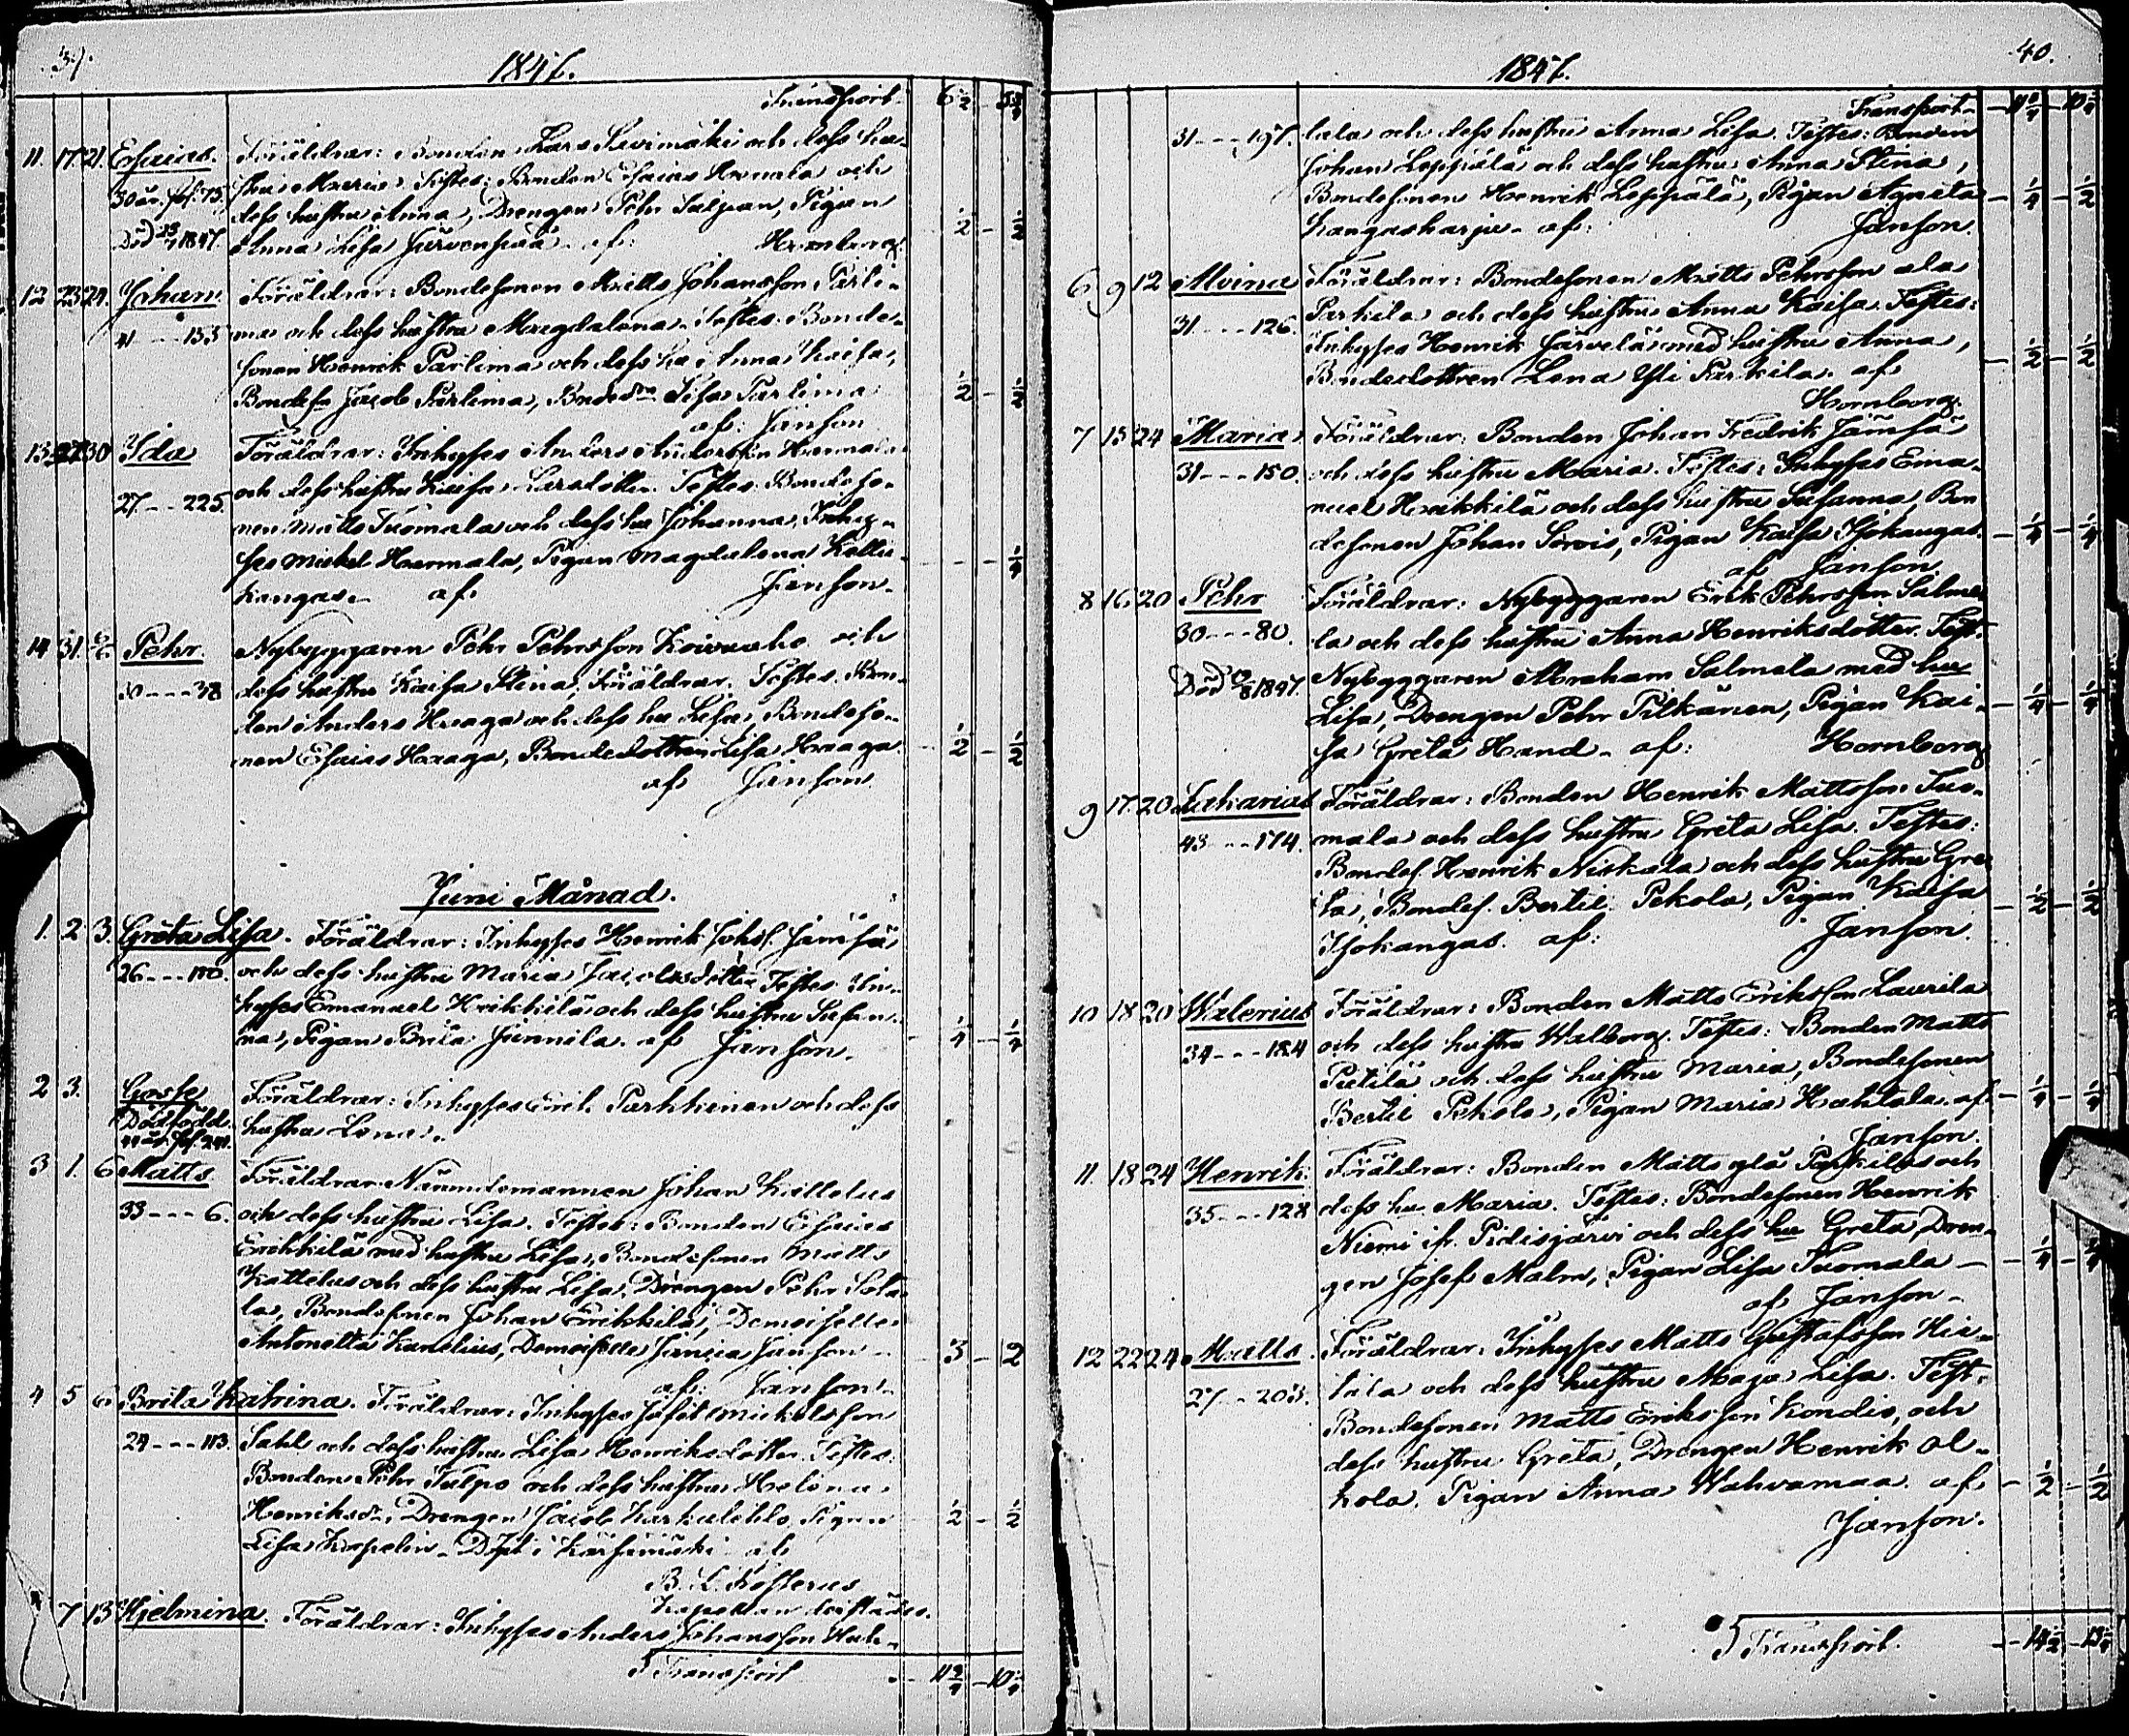 39.
1847.
Transport. 6 1/2
11. 17 21. Esaias. Föräldrar: Bonden Lars Savimäki och dess hu-
30 år. stru Maria. Testes: Bonden Esaias Hannala och
dess hustru Anna, Drengen Pehr Salpan, Pigan
Död 1847. Anna Lisa Järvenpää af: Hornborg. 1/2 1/2
12 23 24. Johan. Föräldrar: Bondesonen Matts Johansson Parli-
41 --- 133 ma och dess hustru Magdalena. Testes: Bonde-
sonen Henrik Parlima och dess hu Anna Kaisa,
Bondes. Jacob Parlima, Lisa Parlima 1/2 1/2
af: Janson
13 27 30 Ida Föräldrar: Inhyses Anders Andersson Hannala
27 --- 225. och dess hustru Kaisa Larsdotter. Testes: Bondeso-
nen Matts Tuomala och dess hu Johanna, Inhy-
ses Mickel Hannala, Pigan Magdalena Kallio-
kangas. af. Janson. 1/4
14 31. Pehr. Nybyggaren Pehr Pehrsson Koivuaho och
30 --- 38 dess hustru Kaisa Stina, Föräldrar. Testes: Bon-
den Anders Haaga och dess hu Lisa, Bondeso-
nen Esaias Haaga, Bondedottren Lisa Haaga 1/2 1/2
af Janson
Juni Månad.
1. 2 3. Greta Lisa. Föräldrar: Inhyses Henrik Johss. Jämsä
26 --- 150. och dess hustru Maria Jacobsdotter. Testes: In-
hyses Emanuel Heikkilä och dess hustru Susan-
na, Pigan Brita Junnila. af Janson. 1/4 1/4
2 3. Gosse Föräldrar: Inhyses Erik Parkkinen och dess
Dödfödd. hustru Lena.
3 1. 6 Matts. Föräldrar: Nämndemannen Johan Kattelus
33 --- 6. och dess hustru Lisa. Testes: Bonden Esaias
Erikkilä med hustru Lisa, Bondesonen Matts
Kattelus och dess hustru Lisa, Drengen Pehr Sala-
la, Bondesonen Johan Erikkilä, Demoiselle
Antonetta Kanelius, Demoiselle Janson 3 - 2
af: Janson.
4 5 6. Brita Katrina. Föräldrar: Inhyses Josef Mickelsson
24 --- 113. Sahl och dess hustru Lisa Henriksdotter. Testes:
Bonden Pehr Tulpo och dess hustru Helena
Henriksdr., Drengen Jacob Karkulehto, Pigan 1/2 1/2
Lisa Kapelin. Döpt i Kärsämäki af
B. L. Kosterus
Kapellan derstädes.
7 13 Hjelmina. Föräldrar: Inhyses Anders Johansson Huh-
Transport
40.
1847.
Transport
31 --- 197. tala och dess hustru Anna Lisa. Testes: Bonden
Johan Leppälä och dess hustru Anna Stina,
Bondesonen Henrik Leppälä, Pigan Agneta 1/4 1/2
Kangasharju af: Janson.
6. 9 12 Alvina Föräldrar: Bondesonen Matts Pehrsson ala
31 --- 126. Parkila och dess hustru Anna Kaisa. Testes:
Inhyses Henrik Järvelä med hustru Anna, 1/2 1/2
Bondedottren Lena Yli Parkila. af
Hornborg.
7 15 24 Maria Föräldrar: Bonden Johan Fredrik Jämsä
31 --- 150. och dess hustru Maria. Testes: Inhyses Ema-
nuel Heikkilä och dess hustru Susanna, Bon
desonen Johan Sorvis, Pigan Kaisa Isokangas. 1/4 1/4
af Janson.
8 16. 20 Pehr Föräldrar: Nybyggaren Erik Pehrsson Salme-
30 --- 80. la och dess hustru Anna Henriksdotter. Test:
Död 1847. Nybyggaren Abraham Salmela med hu
Lisa, Drengen Pehr Pitkänen, Pigan Kai- 1/4 1/4
sa Greta Hand. af: Hornborg
9 17. 20 Zakarias Föräldrar: Bonden Henrik Mattsson Tuo-
43 --- 174. mala och dess hustru Greta Lisa. Testes:
Bondes. Henrik Niskala och dess hustru Gre-
ta, Bondes. Bertil Pekola, Pigan Kaisa 1/2 1/2
Isokangas. af: Janson.
10 18 20 Walerius Föräldrar: Bonden Matts Eriksson Laurila
34 --- 184 och dess hustru Walborg. Testes: Bonden Matts
Pietilä och dess hustru Maria, Bondesonen
Bertil Pekola, Pigan Maria Huhtala. af 1/4 1/4
Janson.
11. 18 24 Henrik. Föräldrar: Bonden Matts ylä Parkila och
35 --- 128 dess hu Maria. Testes: Bondesonen Henrik
Niemi ifr. Pidisjärvi och dess hu Greta, Dren-
gen Josef Malm, Pigan Lisa Tuomala 1/4 1/4
af Janson
12 22 24 Matts. Föräldrar: Inhyses Matts Gustafsson Hie-
27 --- 203. tala och dess hustru Maja Lisa. Test.
Bondesonen Matts Eriksson Kondis, och
dess hustru Greta, Drengen Henrik Ol-
kola. Pigan Anna Wahvamaa. af 1/2 1/2
Janson.
Transport.